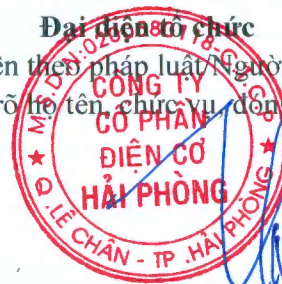 Đại diện tổ chức
theo pháp luật/Người
rõ họ tên, chức vụ, đóng
CÔNG TY
CỔ PHẦN
ĐIỆN CƠ
HẢI PHÒNG
Q. LÊ CHÂN - TP. HẢI PHÒNG